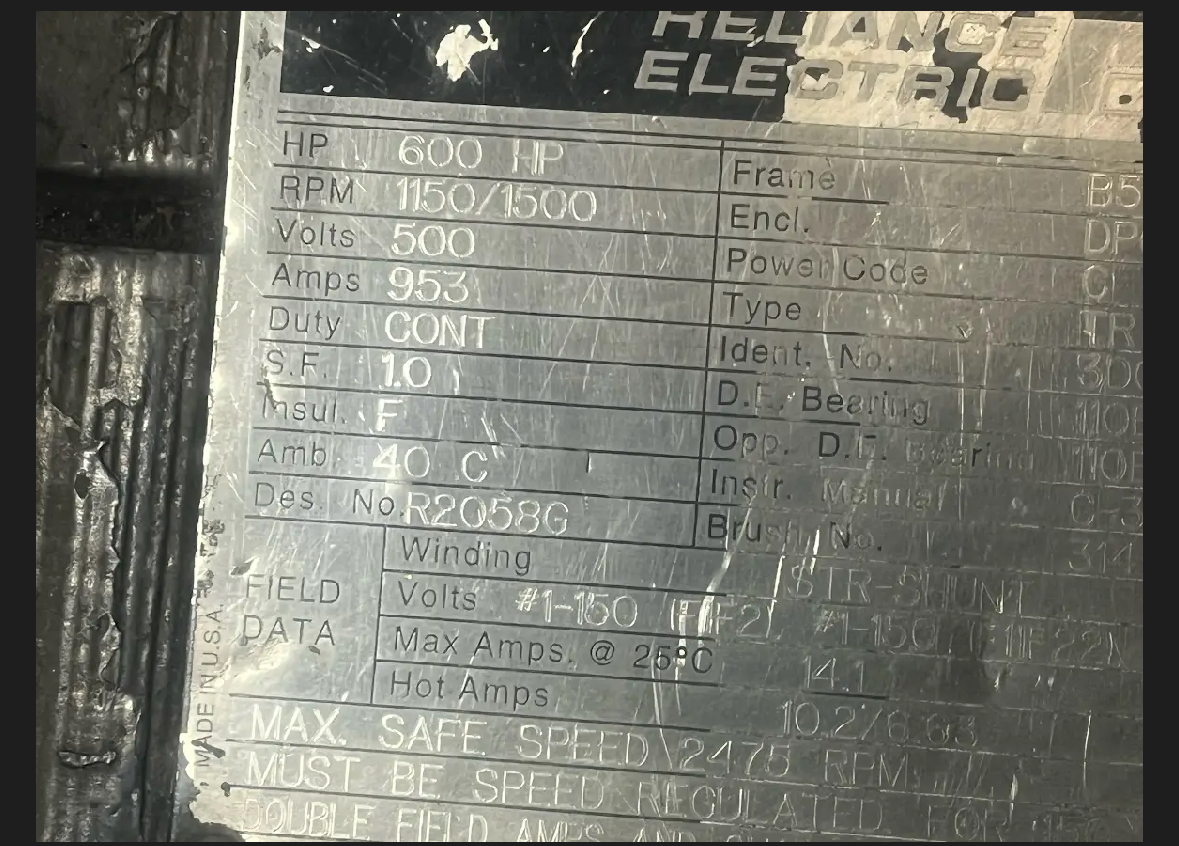 RELIANCE
ELECTRIC
HP 600 HP
RPM 1150/1500
Volts 500
Amps 953
Duty CONT
S.F. 1.0
Insul. F
Amb 40 C
Des. No. R2058G
Frame B5
Encl. DP
Power Code C
Type TR
Ident. No. 300
D.E. Bearing 110
Opp. D.E. Bearing 110
Instr. Manual C-3
Brush No. 314
FIELD DATA
Winding STR-SHUNT
Volts #1-150 (F1F2) #1-150
Max Amps. @ 25°C 14.1
Hot Amps 10.2/6.63
MAX. SAFE SPEED 2475 RPM
MUST BE SPEED REGULATED. FOR
DOUBLE FIELD AMPS AND
MADE IN U.S.A.